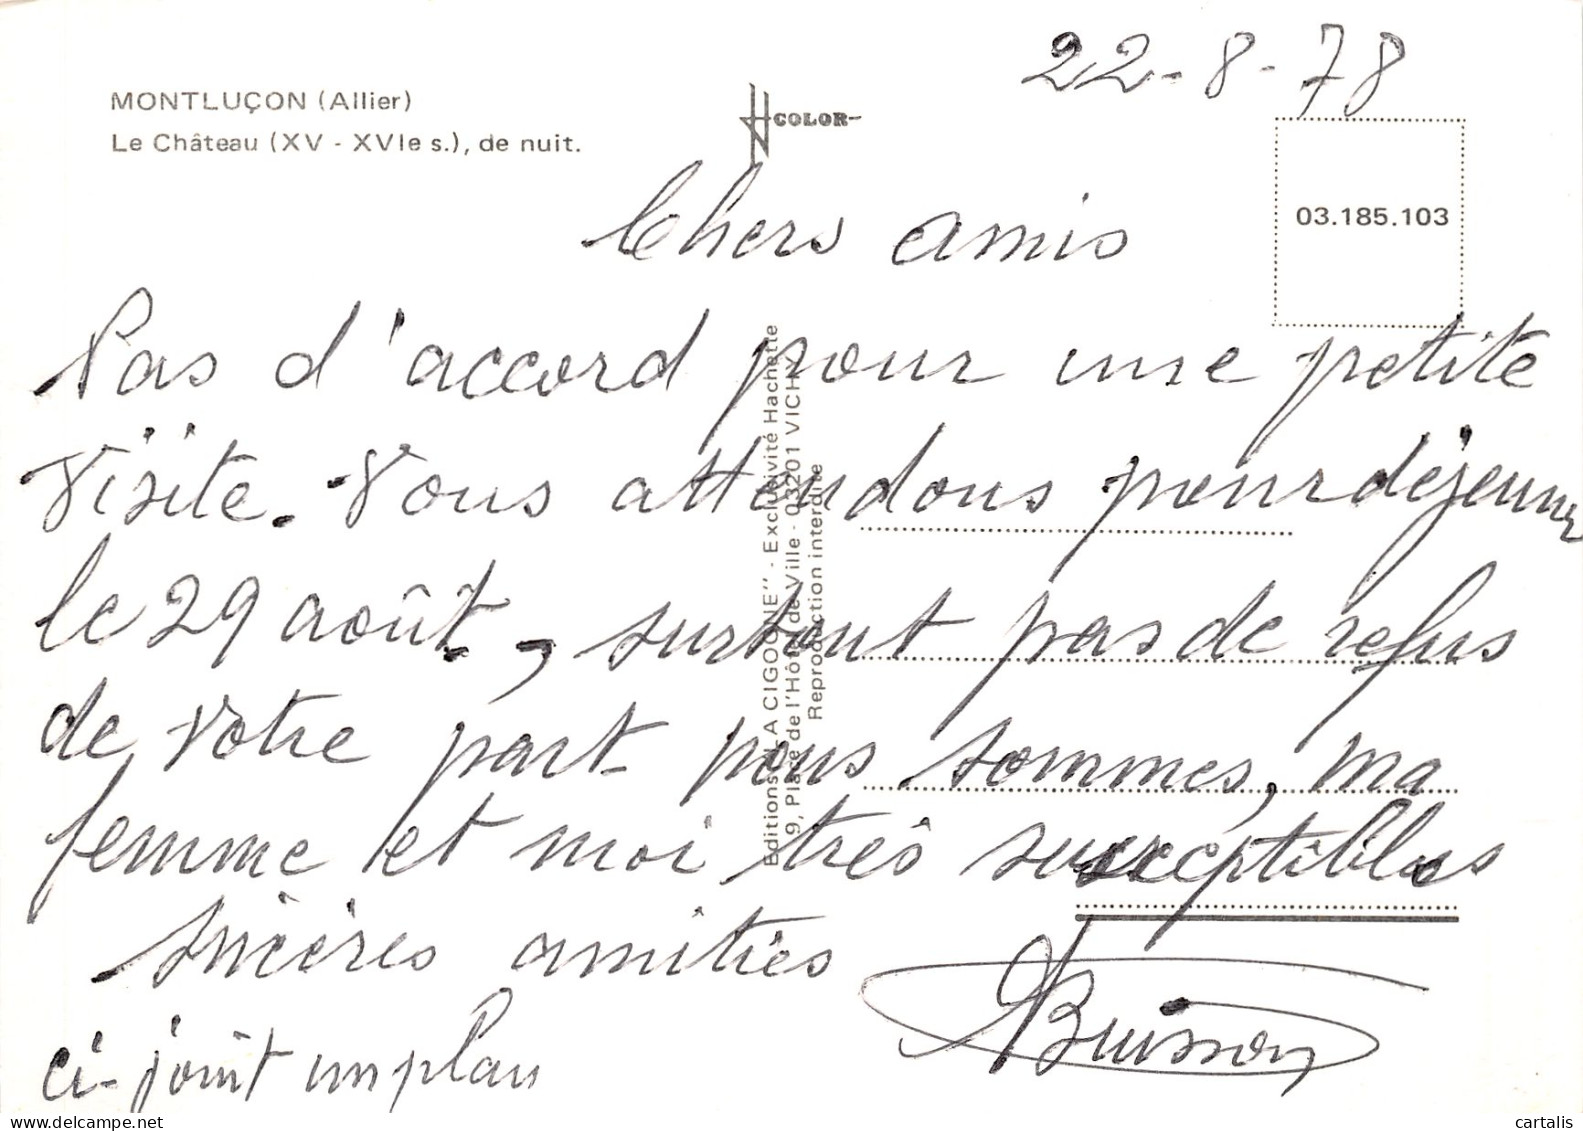 22-8-78
MONTLUÇON (Allier)
Le Château (XV - XVIe s.), de nuit.
COLOR
03.185.103
Chers amis
Pas d'accord pour une petite
visite. Vous attendons pour déjeuner
le 29 août, surtout pas de refus
de votre part nous sommes, ma
femme et moi très susceptibles
sincères amitiés
Buisson
ci-joint un plan
Editions "LA CIGOGNE" - Exclusivité Hachette
9, Place de l'Hôtel de Ville - 03201 VICHY
Reproduction interdite
cartalis
www.delcampe.net